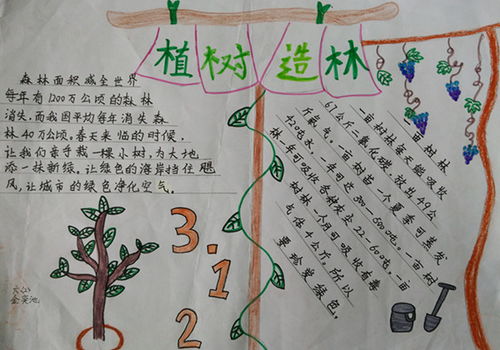 植树造林
森林面积减全世界
每年有1200万公顷的森林
消失,而我国平均每年消失森
林40万公顷。春天来临的时候,
让我们亲手栽一棵小树,为大地
添一抹新绿。让绿色的海岸挡住飓
风,让城市的绿色净化空气。
一亩树林
一亩树林每天能吸收
67公斤二氧化碳,放出49公
斤氧气。一亩苗一个夏季可蒸发
420吨水,一年可送300-600吨。一亩
林一年可吸收各种灰尘22-60吨。一亩树
树林一个月可吸收有毒
气体4公斤。所以
要珍爱绿色。
3.
1
2
六(2)